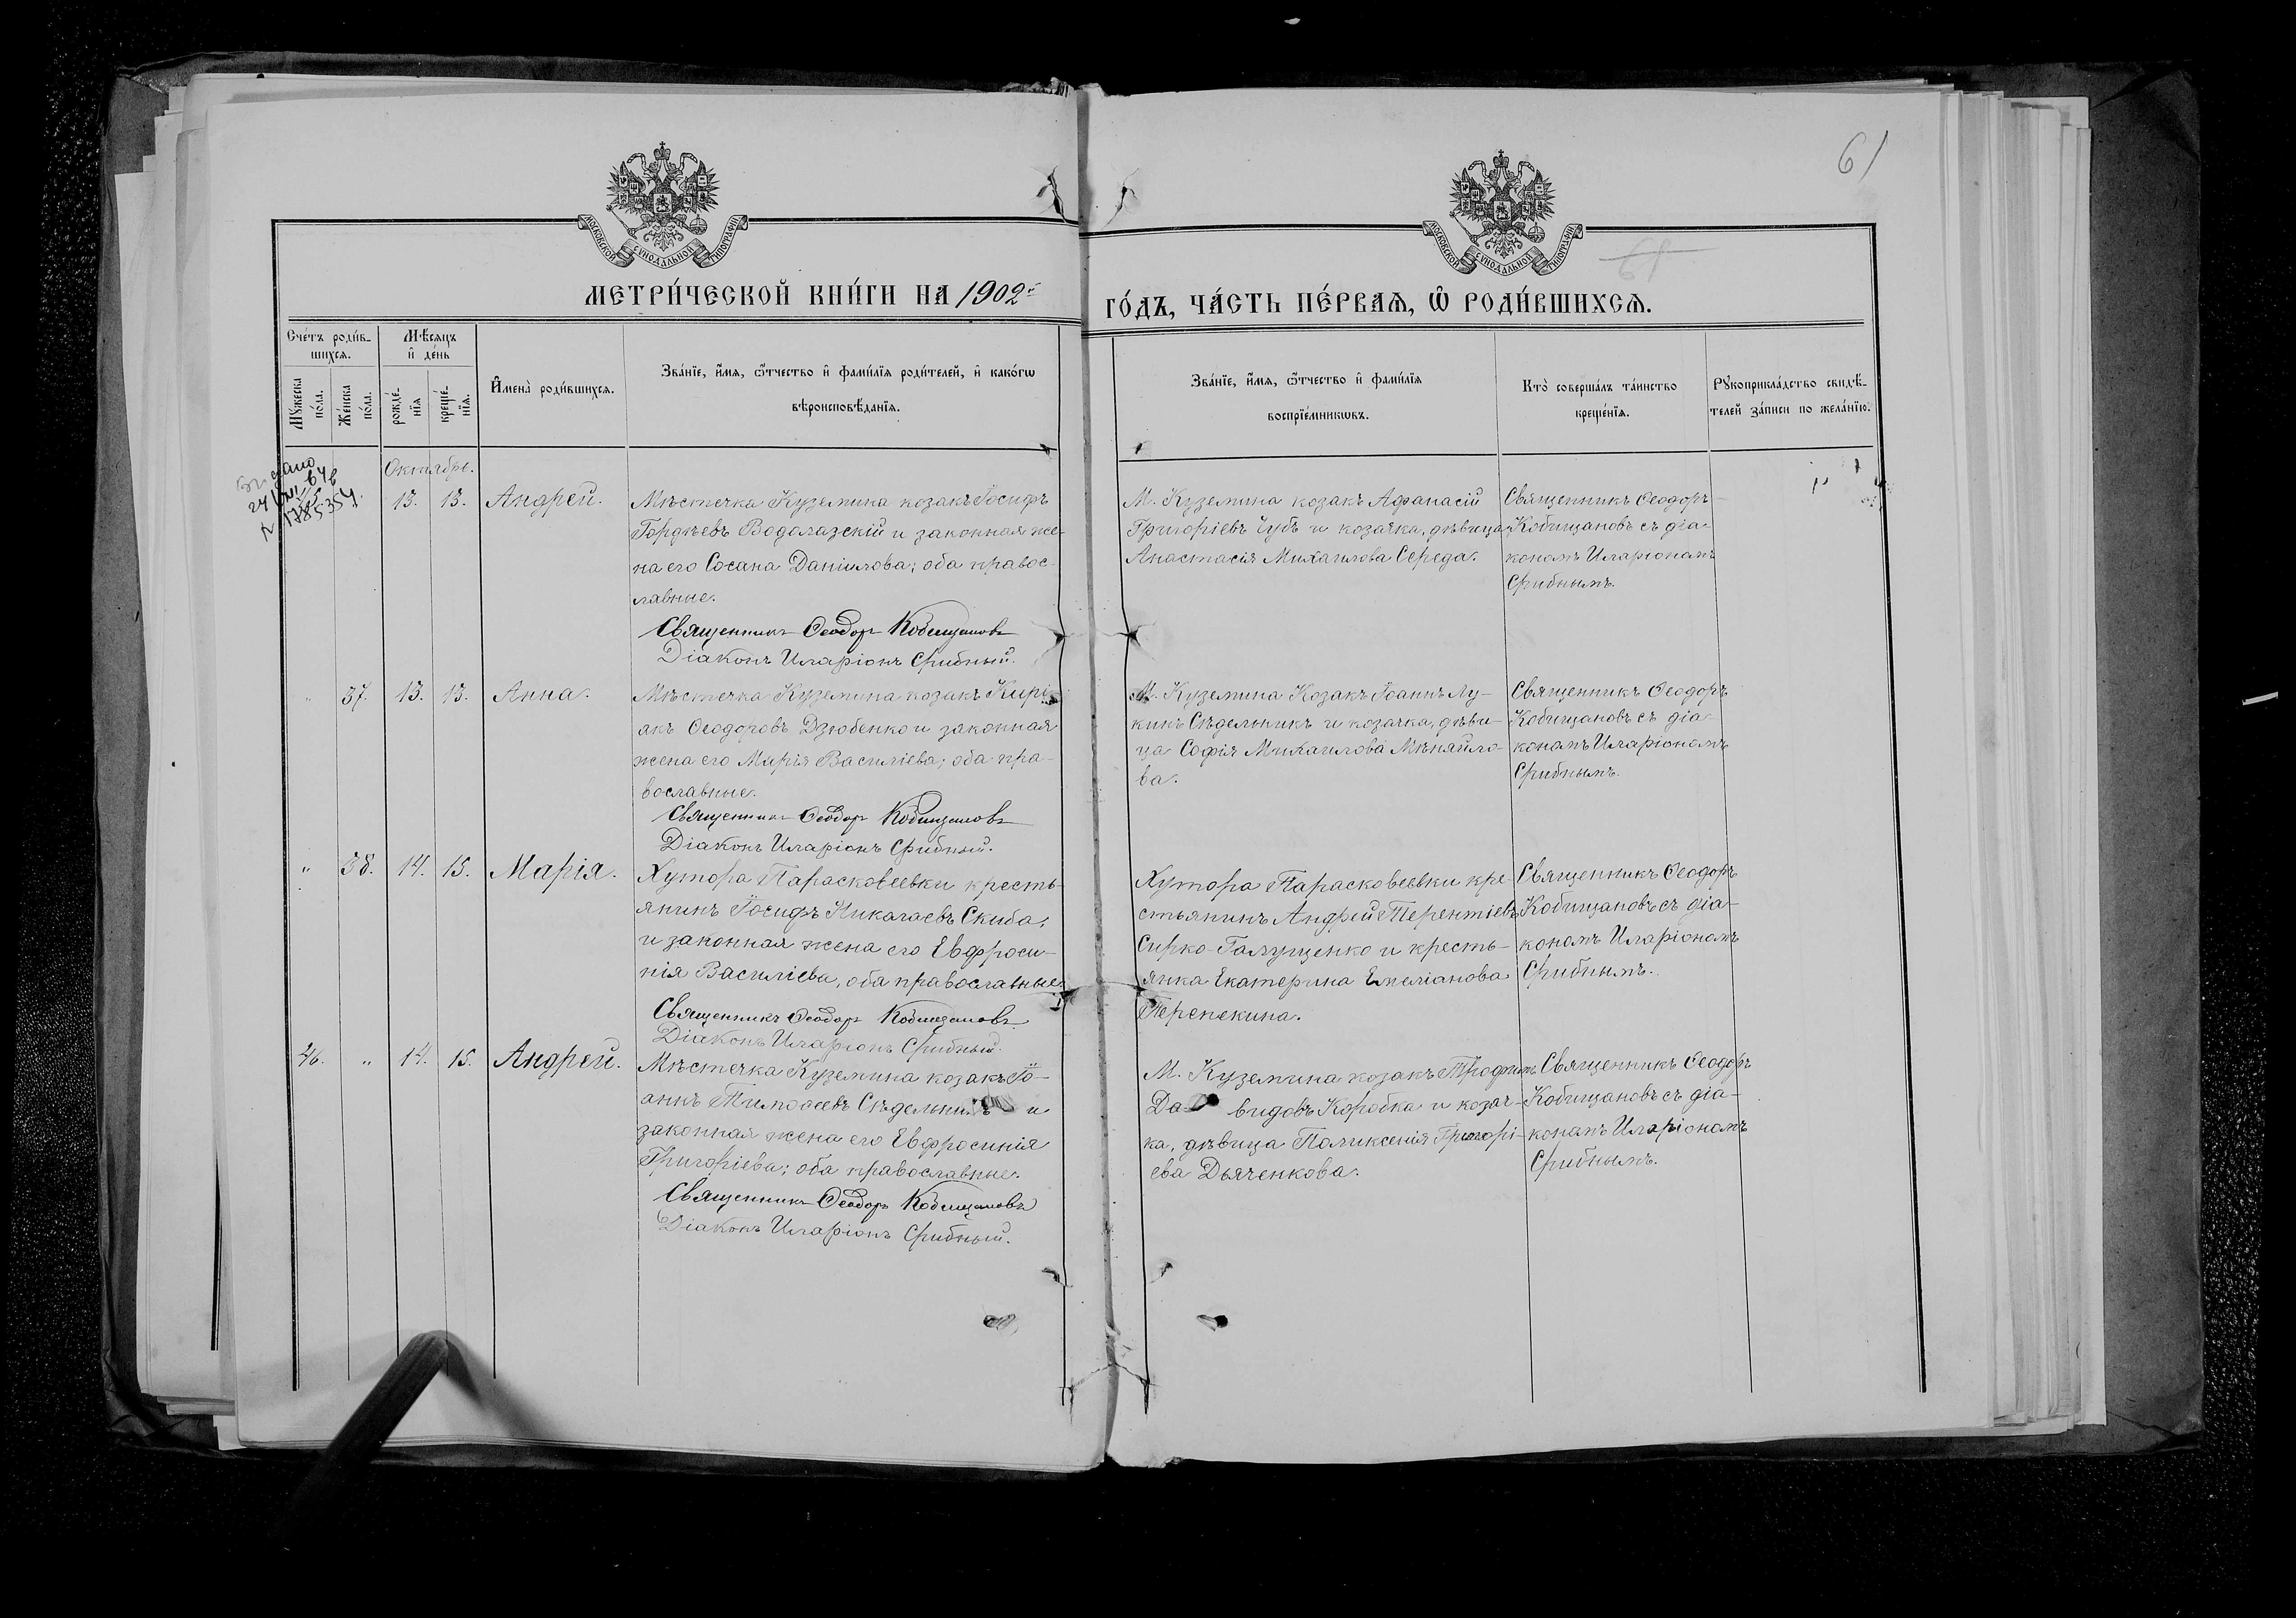 61
61
МОСКОВСКОЙ СУНОДАЛЬНОЙ ТИПОГРАФІИ
МОСКОВСКОЙ СУНОДАЛЬНОЙ ТИПОГРАФІИ
МЕТРИ́ЧЕСКОЙ КНИ́ГИ НА 1902й
ГО́ДЪ, ЧА́СТЬ ПЕ́РВАѦ, Ѡ РОДИ́ВШИХСѦ.
Сче́тъ роди́в-
шихсѧ.
Мѣ́сѧцъ
и де́нь
Мꙋ́жеска
по́ла.
Же́нска
по́ла.
рожде́-
нїѧ
креще́-
нїѧ.
Имена̀ роди́вшихсѧ.
Зва́нїе, и́мѧ, ѻ́тчество и фами́лїѧ роди́телей, и како́гѡ
вѣроисповѣ́данїѧ.
Зва́нїе, и́мѧ, ѻ́тчество и фами́лїѧ
воспрїе́мникѡвъ.
Кто̀ соверша́лъ та́инство
креще́нїѧ.
Рꙋкоприкла́дство свидѣ́-
телей за́писи по жела́нїю.
Октябрь.
13. 13. Андрей.
Мѣстечка Куземина козакъ Іосифъ
Гордѣевъ Водолазскій и законная же-
на его Сосана Даніилова; оба правос-
лавные.
Священникъ Ѳеодоръ Кобищановъ
Діаконъ Иларіонъ Срибный.
М. Куземина козакъ Афанасій
Григоріевъ Чубъ и козачка, дѣвица
Анастасія Михаилова Середа.
Священникъ Ѳеодоръ
Кобищановъ съ діа-
кономъ Иларіономъ
Срибнымъ.
" 37. 13. 13. Анна.
Мѣстечка Куземина козакъ Кирі-
акъ Ѳеодоровъ Дзюбенко и законная
жена его Марія Василіева; оба пра-
вославные.
Священникъ Ѳеодоръ Кобищановъ
Діаконъ Иларіонъ Срибный.
М. Куземина Козакъ Іоаннъ Лу-
кинъ Сѣдельникъ и козачка, дѣви-
ца Софія Михаилова Мѣняйло-
ва.
Священникъ Ѳеодоръ
Кобищановъ съ діа-
кономъ Иларіономъ
Срибнымъ.
" 38. 14. 15. Марія.
Хутора Парасковеевки кресть-
янинъ Іосифъ Николаевъ Скиба,
и законная жена его Евфроси-
нія Василіева, оба православные
Священникъ Ѳеодоръ Кобищановъ
Діаконъ Иларіонъ Срибный.
Хутора Парасковеевки кре-
стьянинъ Андрей Терентіевъ
Сирко-Галущенко и кресть-
янка Екатерина Емеліанова
Перепекина.
Священникъ Ѳеодоръ
Кобищановъ съ діа-
кономъ Иларіономъ
Срибнымъ.
46. " 14. 15. Андрей.
Мѣстечка Куземина козакъ Іо-
аннъ Тимоѳеевъ Сѣдельникъ и
законная жена его Евфросинія
Григоріева; оба православные.
Священникъ Ѳеодоръ Кобищановъ
Діаконъ Иларіонъ Срибный.
М. Куземина козакъ Трофимъ
Давидовъ Коробка и козач-
ка, дѣвица Поликсенія Григорі-
ева Дьяченкова.
Священникъ Ѳеодоръ
Кобищановъ съ діа-
кономъ Иларіономъ
Срибнымъ.